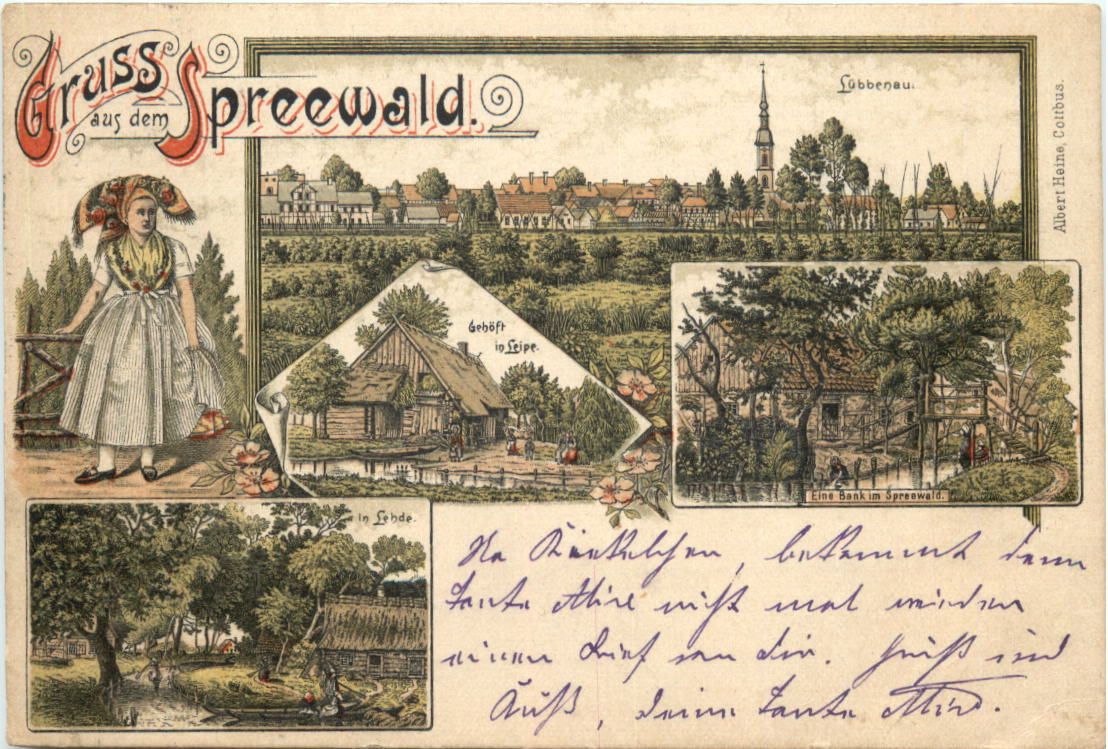 Gruss
aus dem
Spreewald.
Lübbenau.
Albert Heine, Cottbus.
Gehöft
in Leipe.
Eine Bank im Spreewald.
in Lehde.
Na bekommt denn
Tante nicht mal wieder
einen Brief von dir. Gruß und
Kuß, deine Tante